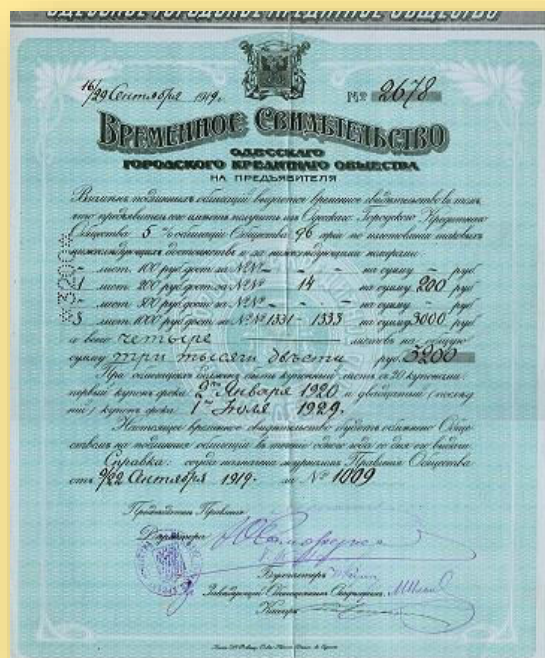 ОДЕССКОЕ ГОРОДСКОЕ КРЕДИТНОЕ ОБЩЕСТВО
16/29 Сентября 1919 г. № 2678
ВРЕМЕННОЕ СВИДѢТЕЛЬСТВО
ОДЕССКАГО
ГОРОДСКОГО КРЕДИТНАГО ОБЩЕСТВА
НА ПРЕДЪЯВИТЕЛЯ
Взамѣнъ подлинныхъ облигацій выдается временное свидѣтельство въ томъ,
что предъявитель его имѣетъ получить изъ Одесскаго Городскаго Кредитнаго
Общества 5% облигаціи Общества 96 серіи по изготовленіи таковыхъ
нижеслѣдующихъ достоинствъ и за нижеслѣдующими номерами
- лист. 100 руб. дост. за №№ - - - - на сумму - руб
1 лист. 200 руб. дост. за №№ - 14 - на сумму 200 руб
- лист. 500 руб. дост. за №№ - - - на сумму - руб
3 лист. 1000 руб. дост. за №№ 1331 - 1333 на сумму 3000 руб
а всего четыре листовъ на общую
сумму три тысячи двѣсти руб. 3200
*3200*
При облигаціяхъ долженъ быть купонный листъ съ 20 купонами:
первый купонъ срока 2го Января 1920 и двадцатый (послѣд
ній) купонъ срока 1го Іюля 1929.
Настоящее временное свидѣтельство будетъ обмѣнено Обще-
ствомъ на подлинныя облигаціи въ теченіе одного года со дня его выдачи
Справка: ссуда назначена журналомъ Правленія Общества
отъ 9/22 Сентября 1919. за № 1009
Предсѣдатель Правленія
Директоръ
Бухгалтеръ
Завѣдующій Облигаціоннымъ Отдѣломъ
Кассиръ